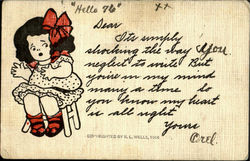 "Hello 76" xx
Dear
Its simply
shocking the way you
neglect to write But
you're in my mind
many a time so
you know my heart
is all right
Yours
COPYRIGHTED BY R. L. WELLS, 1906